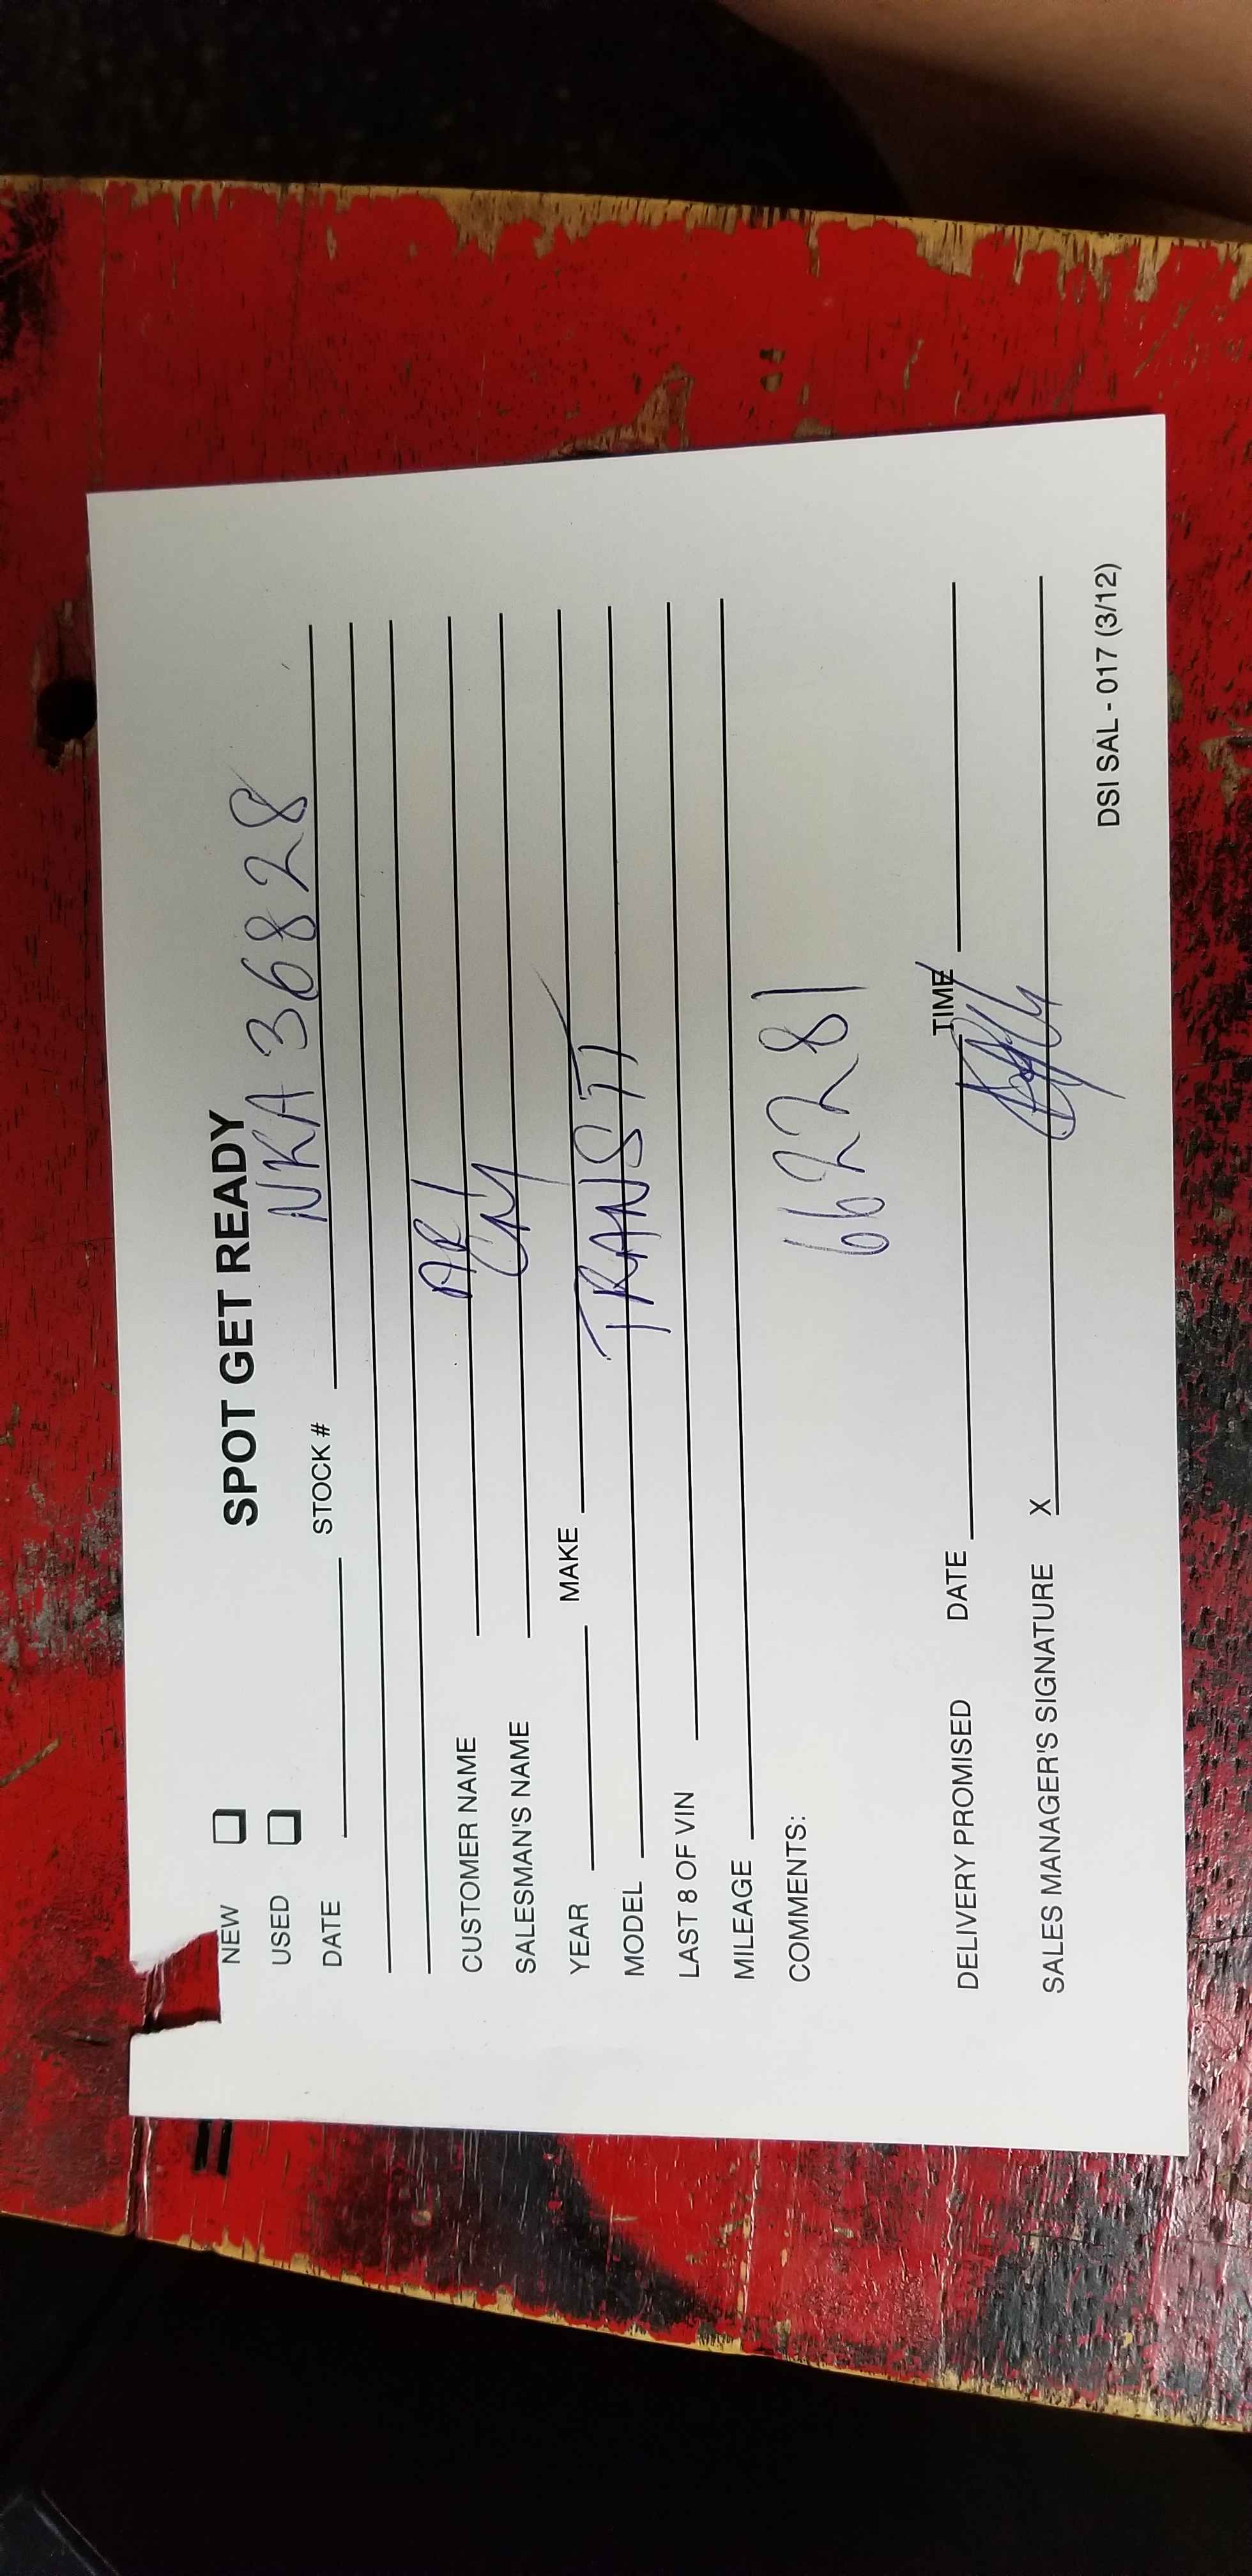 SPOT GET READY
NEW
USED
DATE STOCK # NKA36828
CUSTOMER NAME
SALESMAN'S NAME
YEAR MAKE
MODEL TRANSIT
LAST 8 OF VIN
MILEAGE
COMMENTS: 662281
DELIVERY PROMISED DATE TIME
SALES MANAGER'S SIGNATURE X
DSI SAL - 017 (3/12)